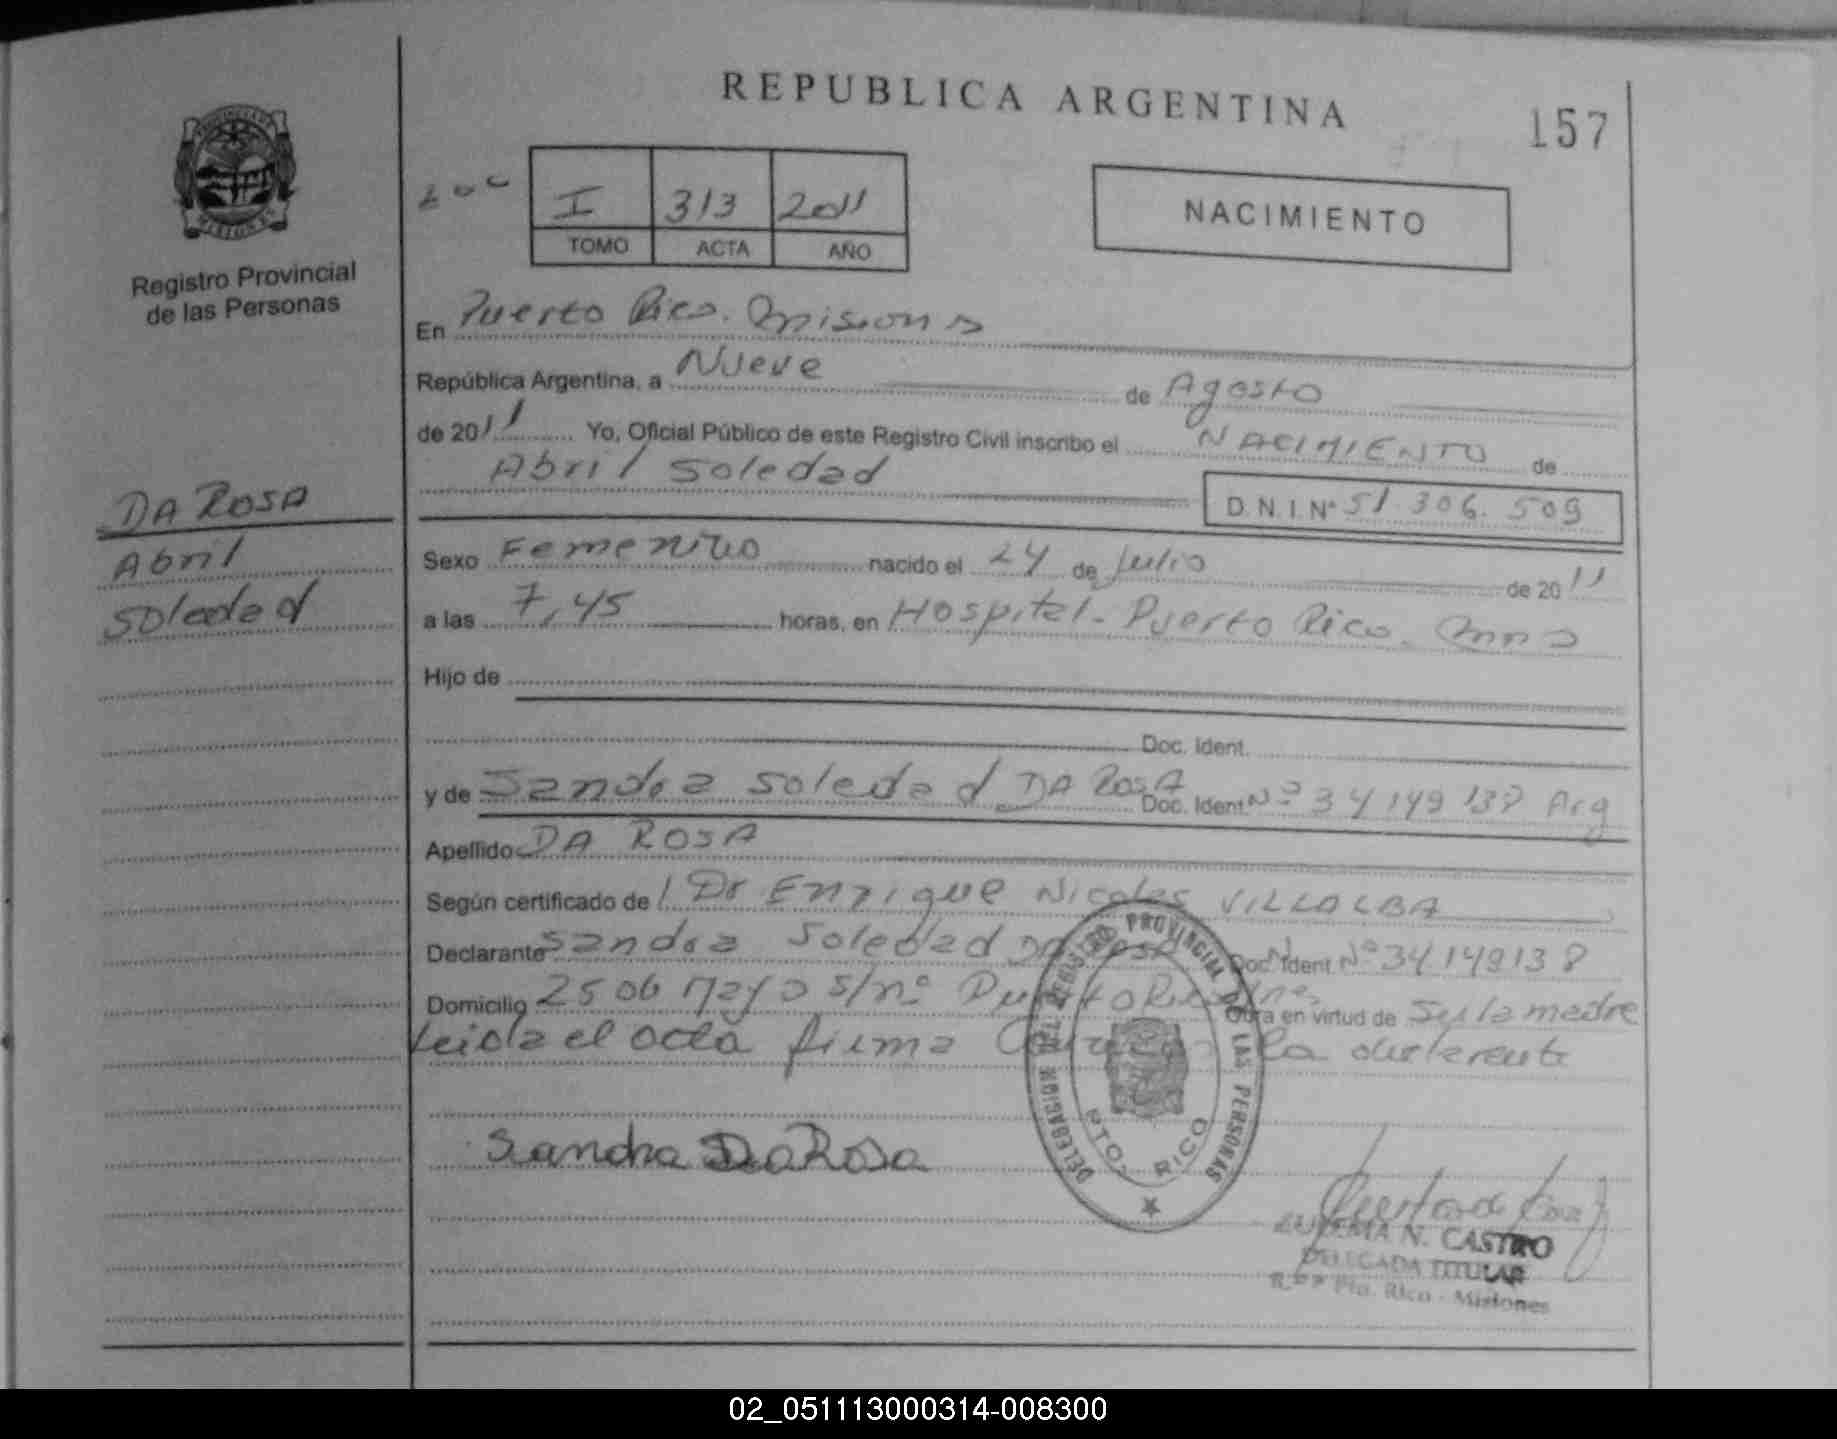 REPUBLICA ARGENTINA
157
PROVINCIA DE MISIONES
Registro Provincial
de las Personas
I 313 2011
TOMO ACTA AÑO
NACIMIENTO
En Puerto Rico. Misiones
República Argentina, a Nueve de Agosto
de 2011 Yo, Oficial Público de este Registro Civil inscribo el NACIMIENTO de
Abril Soledad
D.N.I. Nº 51.306.509
DA ROSA
Abril
Soledad
Sexo Femenino nacido el 24 de Julio de 2011
a las 7,45 horas, en Hospital - Puerto Rico. Mnes
Hijo de
Doc. Ident.
y de Sandra Soledad DA ROSA Doc. Ident. Nº 34149138 Arg
Apellido DA ROSA
Según certificado de Dr Enrique Nicolas VILLALBA
Declarante Sandra Soledad DA ROSA Doc. Ident. Nº 34149138
Domicilio 25 de Mayo S/nº Puerto Rico Mnes Obra en virtud de Ser la madre
Leida el acta firma la declarante
Sandra Da Rosa
DELEGACION DEL REGISTRO PROVINCIAL DE LAS PERSONAS
PTO. RICO
N. CASTRO
DELEGADA TITULAR
R.P.P. Pto. Rico - Misiones
02_051113000314-008300